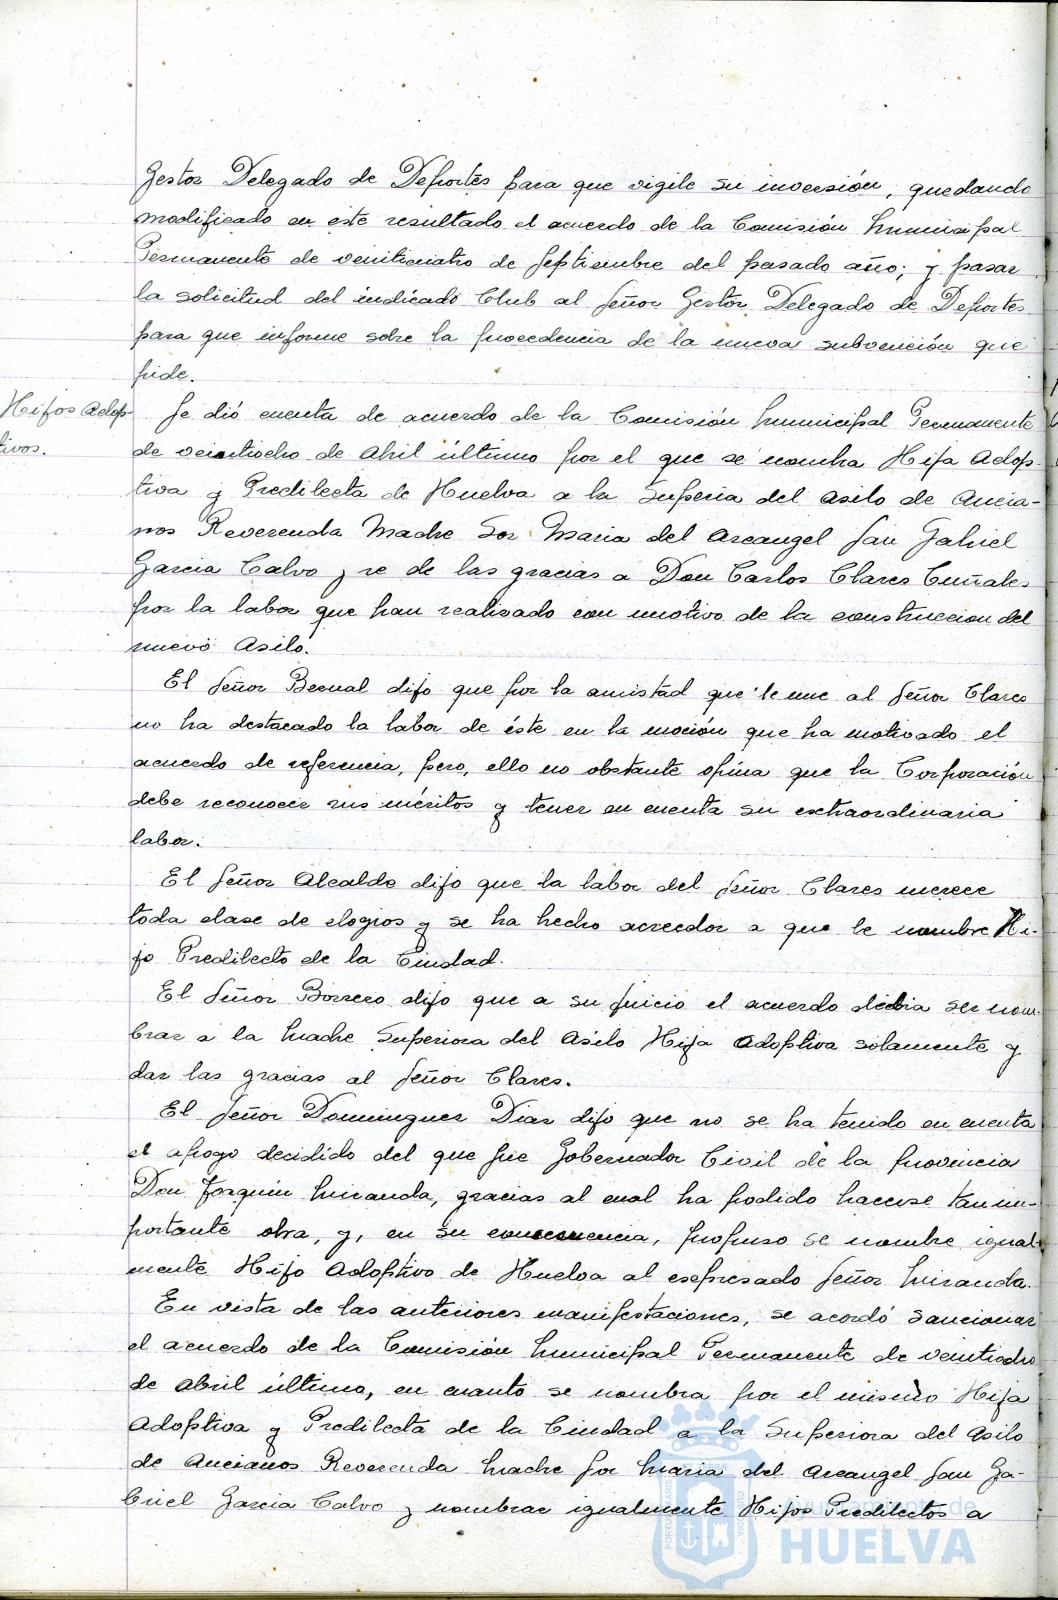 Gestor Delegado de Deportes para que vigile su inversión, quedando
modificado en este resultado el acuerdo de la Comisión Municipal
Permanente de veinticuatro de Septiembre del pasado año; y pasar
la solicitud del indicado Club al Señor Gestor Delegado de Deportes
para que informe sobre la procedencia de la nueva subvención que
pide.
Hijos Adop-
tivos.
Se dió cuenta de acuerdo de la Comisión Municipal Permanente
de veintiocho de Abril último por el que se nombra Hija Adop-
tiva y Predilecta de Huelva a la Superia del Asilo de Ancia-
nos Reverenda Madre Sor Maria del Arcangel San Gabriel
Garcia Calvo y se de las gracias a Don Carlos Clares Cuñales
por la labor que han realizado con motivo de la construccion del
nuevo Asilo.
El Señor Bernal dijo que por la amistad que le une al Señor Clares
no ha destacado la labor de éste en la moción que ha motivado el
acuerdo de referencia, pero, ello no obstante opina que la Corporación
debe reconocer sus méritos y tener en cuenta su extraordinaria
labor.
El Señor Alcalde dijo que la labor del Señor Clares merece
toda clase de elogios y se ha hecho acreedor a que le nombre Hi-
jo Predilecto de la Ciudad.
El Señor Borrero dijo que a su juicio el acuerdo debia ser nom-
brar a la Madre Superiora del Asilo Hija Adoptiva solamente y
dar las gracias al Señor Clares.
El Señor Dominguez Diaz dijo que no se ha tenido en cuenta
el apoyo decidido del que fue Gobernador Civil de la Provincia
Don Joaquin Miranda, gracias al cual ha podido hacerse tan im-
portante obra, y, en su consecuencia, propuso se nombre igual-
mente Hijo Adoptivo de Huelva al expresado Señor Miranda.
En vista de las anteriores manifestaciones, se acordó sancionar
el acuerdo de la Comisión Municipal Permanente de veintiocho
de Abril último, en cuanto se nombra por el mismo Hija
Adoptiva y Predilecta de la Ciudad a la Superiora del Asilo
de Ancianos Reverenda Madre Sor Maria del Arcangel San Ga-
briel Garcia Calvo y nombrar igualmente Hijos Predilectos a
Ayuntamiento de
HUELVA